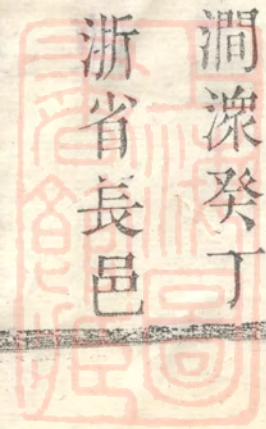 澗濴癸丁
浙省長邑